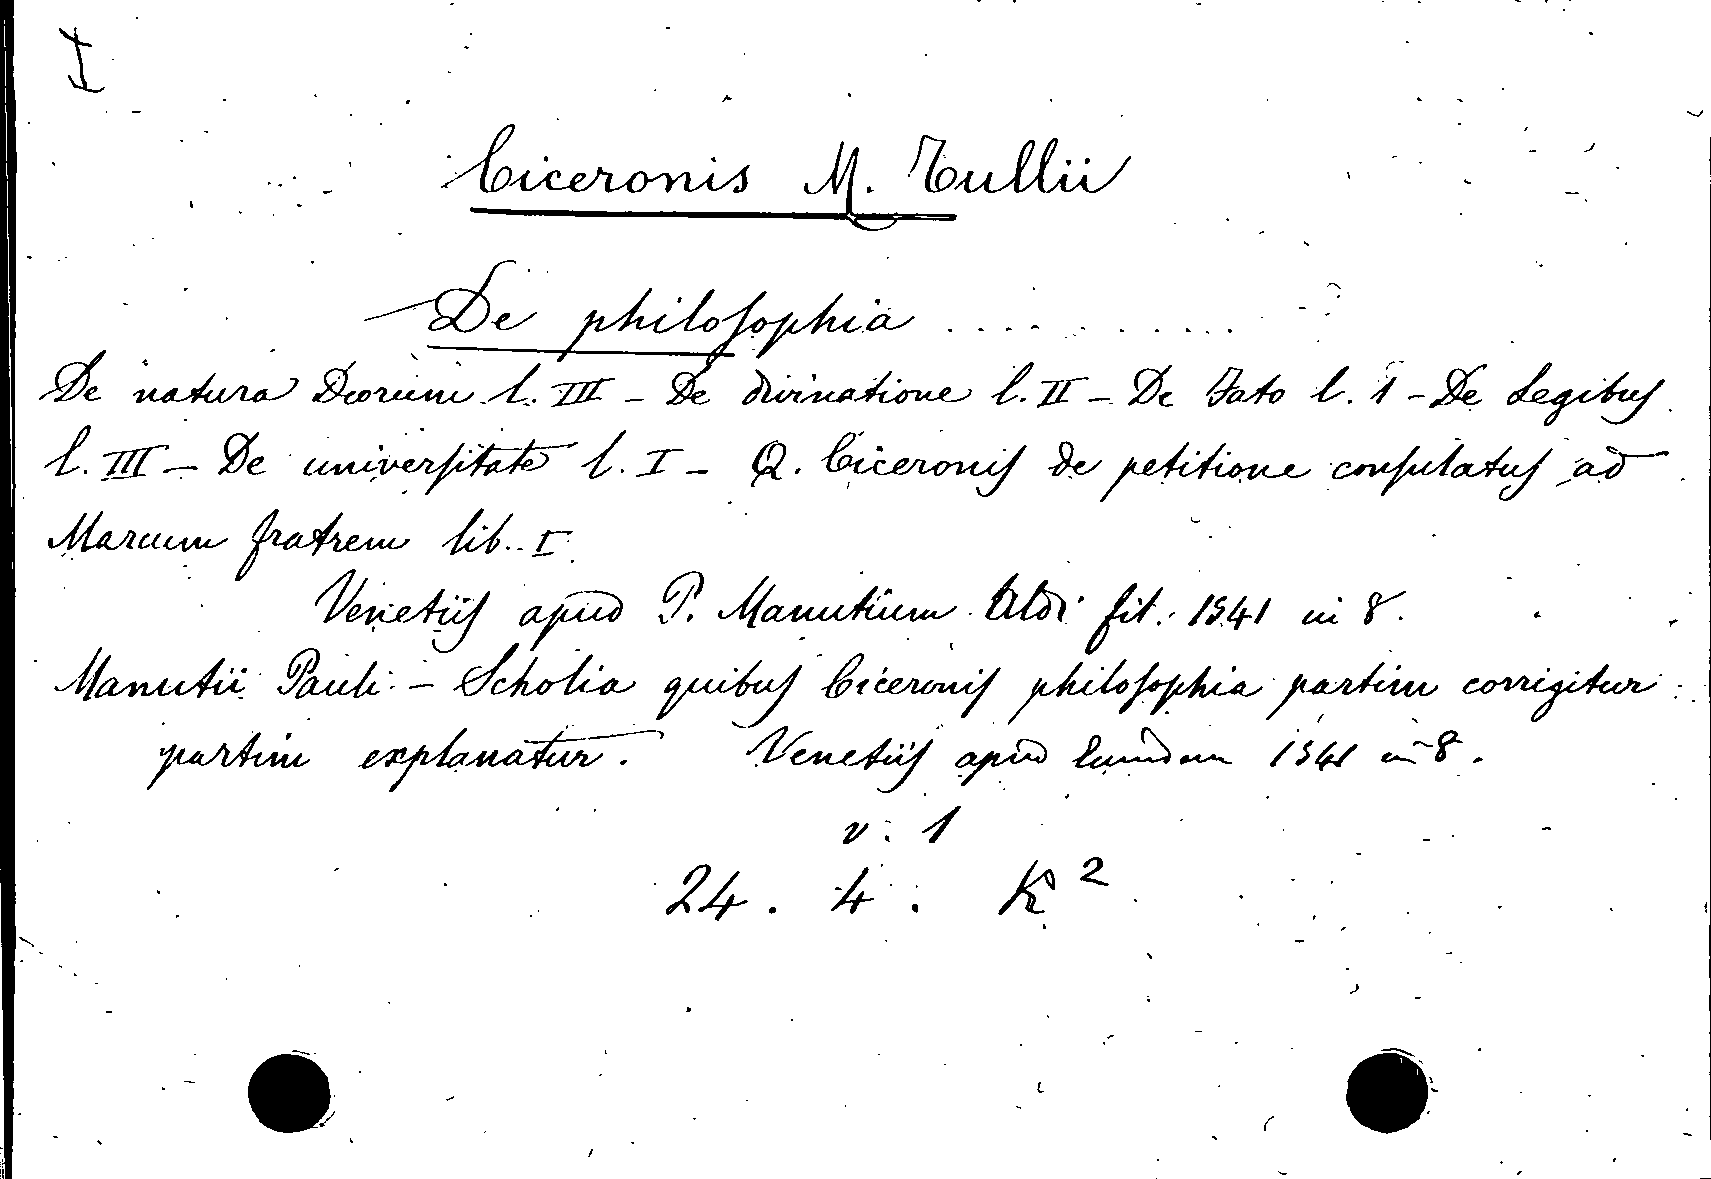 I
Ciceronis M. Tullii
De philosophia ...........
De natura Deorum l. III - De divinatione l. II - De Fato l. 1 - De Legibus
l. III - De universitate l. I - Q. Ciceronis de petitione consulatus ad
Marcum fratrem lib. I
Venetiis apud P. Manutium Aldi fil. 1541 in 8.
Manutii Pauli - Scholia quibus Ciceronis philosophia partim corrigitur
partim explanatur. Venetiis apud eumdem 1541 in 8.
v. 1
24. 4. K²